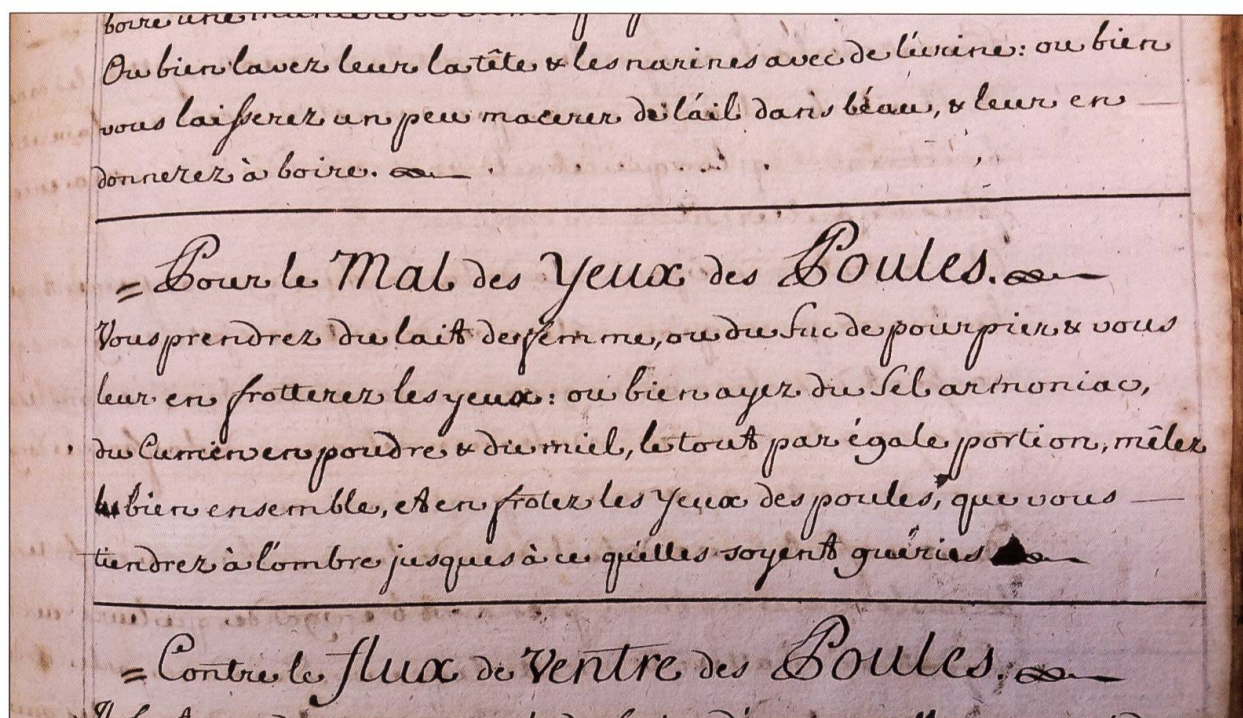 boire une maniere
Ou bien lavez leur la tête & les narines avec de l'urine: ou bien
vous laisserez un peu macerer de l'ail dans l'eau, & leur en
donnerez à boire.
= Pour le Mal des Yeux des Poules.
Vous prendrez du lait de femme, ou du suc de pourpier & vous
leur en frotterez les yeux: ou bien ayez du Sel armoniac,
du Cumin en poudre & du miel, le tout par égale portion, mêlez
bien ensemble, et en frotez les Yeux des poules, que vous
tiendrez à l'ombre jusques à ce qu'elles soyent guéries
= Contre le flux de Ventre des Poules.